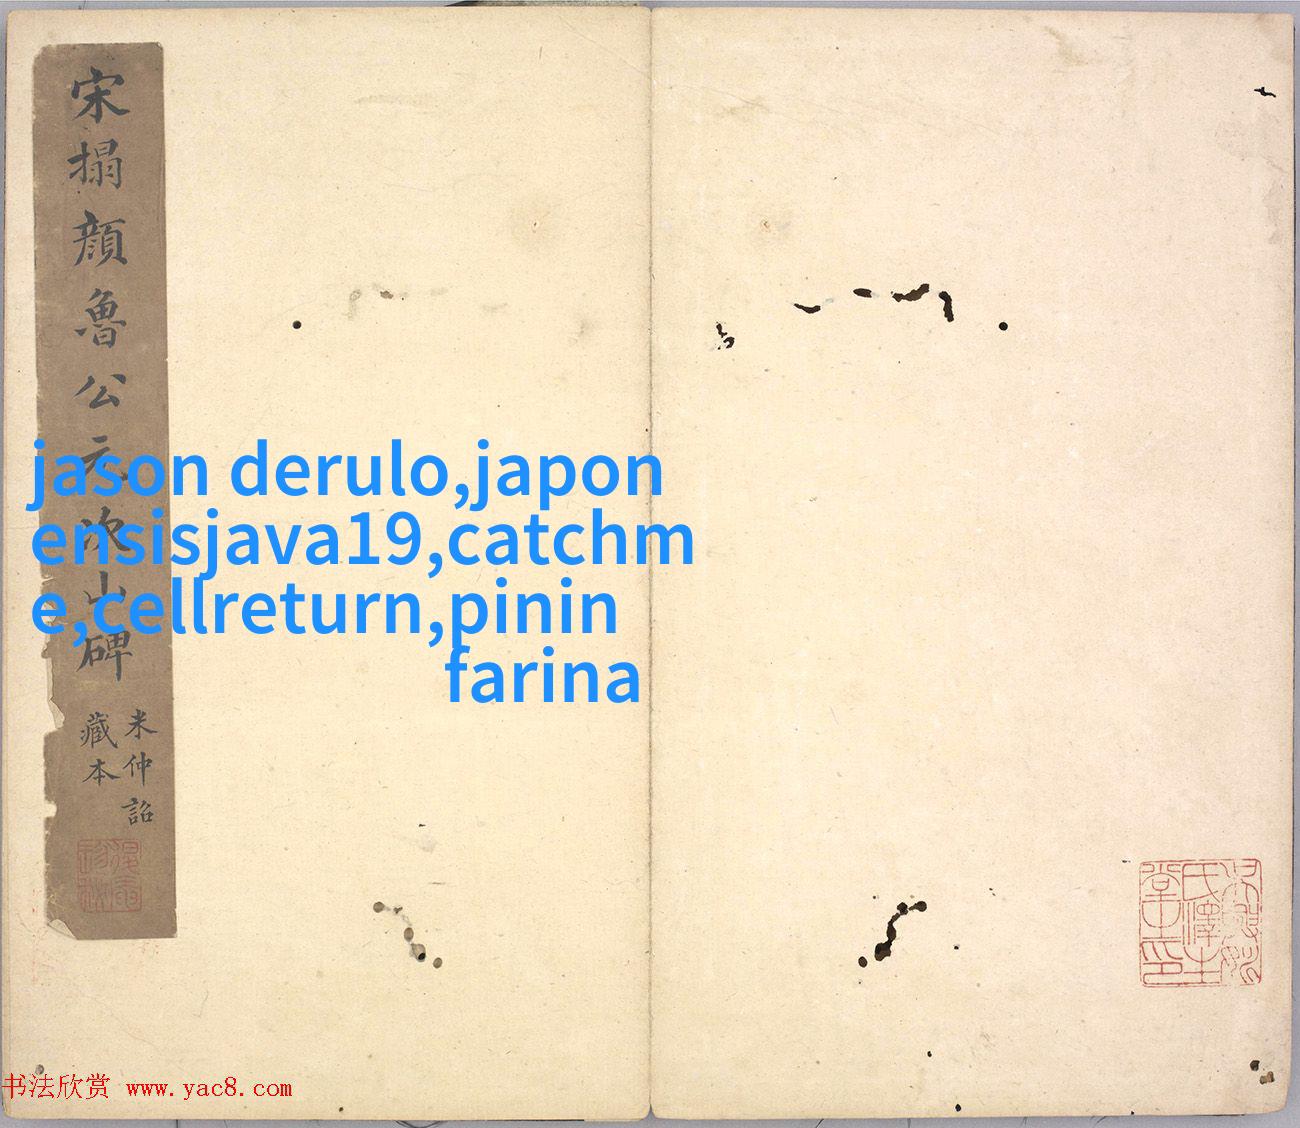 宋搨顏魯公元次山碑
米仲詔
藏本
jason derulo,japon
ensisjava19,catchm
e,cellreturn,pinin
farina
书法欣赏 www.yac8.com